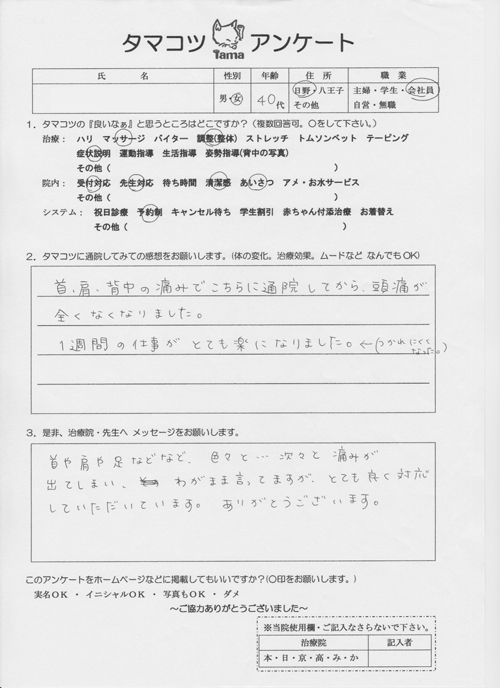 タマコツ Tama アンケート
氏 名 性別 年齢 住 所 職 業
男・女 40代 日野・八王子 その他 主婦・学生・会社員 自営・無職
1．タマコツの『良いなぁ』と思うところはどこですか？（複数回答可。○をして下さい。）
治療： ハリ マッサージ バイター 調整(整体) ストレッチ トムソンベット テーピング
症状説明 運動指導 生活指導 姿勢指導(背中の写真)
その他（ ）
院内： 受付対応 先生対応 待ち時間 清潔感 あいさつ アメ・お水サービス
その他（ ）
システム： 祝日診療 予約制 キャンセル待ち 学生割引 赤ちゃん付添治療 お着替え
その他（ ）
2．タマコツに通院してみての感想をお願いします。(体の変化。治療効果。ムードなど なんでもOK)
首、肩、背中の痛みでこちらに通院してから、頭痛が
全くなくなりました。
1週間の仕事がとても楽になりました。←(つかれにくくなった。)
3．是非、治療院・先生へ メッセージをお願いします。
首や肩や足などなど、色々と…次々と痛みが
出てしまい、わがまま言ってますが、とても良く対応
していただいています。ありがとうございます。
このアンケートをホームページなどに掲載してもいいですか？(○印をお願いします。)
実名OK ・ イニシャルOK ・ 写真もOK ・ ダメ
～ご協力ありがとうございました～
※当院使用欄・ご記入なさらないで下さい。
治療院 記入者
本・日・京・高・み・か